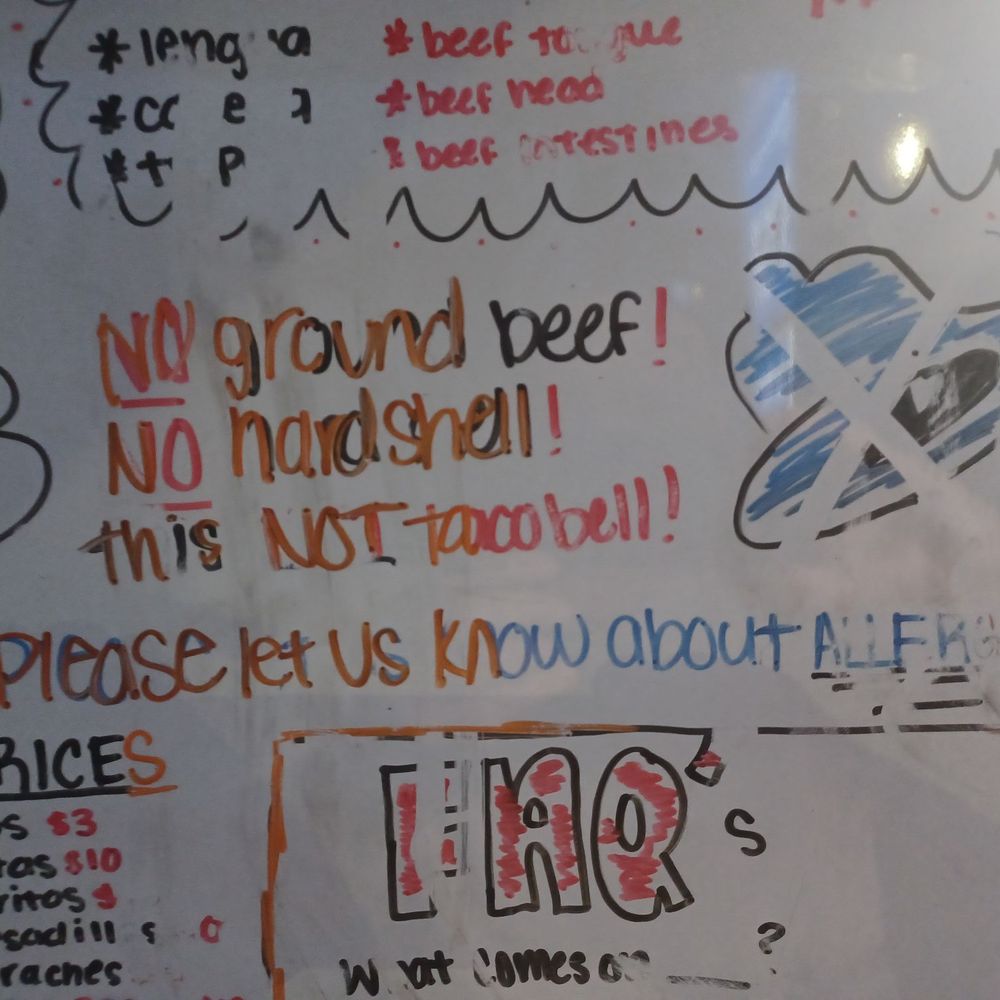 *lengua *beef tongue
* *beef head
* * beef intestines
NO ground beef!
NO hardshell!
this NOT taco bell!
Please let us know about
RICES
os $3
tas $10
ritos
raches
FAQ's
What comes on ___?